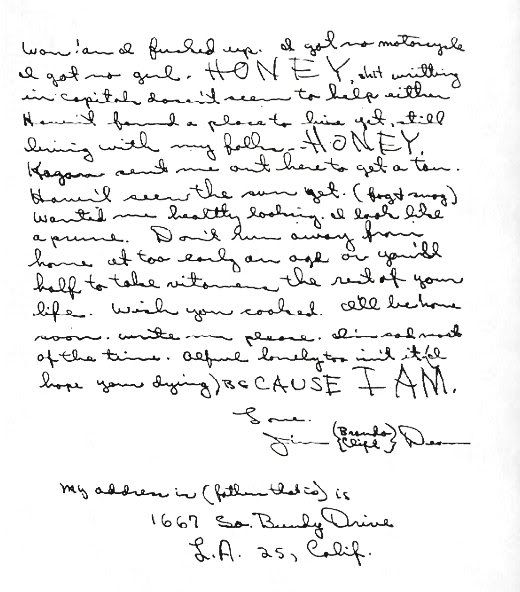 Wow! am I fucked up. I got no motorcycle
I got no girl. HONEY, shit writting
in capitals doesn't seem to help either
Haven't found a place to live yet. still
living with my folks. HONEY.
Kazan sent me out here to get a tan.
Haven't seen the sun yet. (fog & smog)
Wanted me healthy looking. I look like
a prune. Don't run away from
home at too early an age or you'll
half to take vitamens the rest of your
life. Wish you cooked. I'll be home
soon. write me please. I'm sad most
of the time. Awful lonely too isn't it (I
hope your dying) BECAUSE I AM.
Love.
Jim (Brando Clift) Dean
My address is (father that is) is
1667 So. Bundy Drive
L.A. 25, Calif.